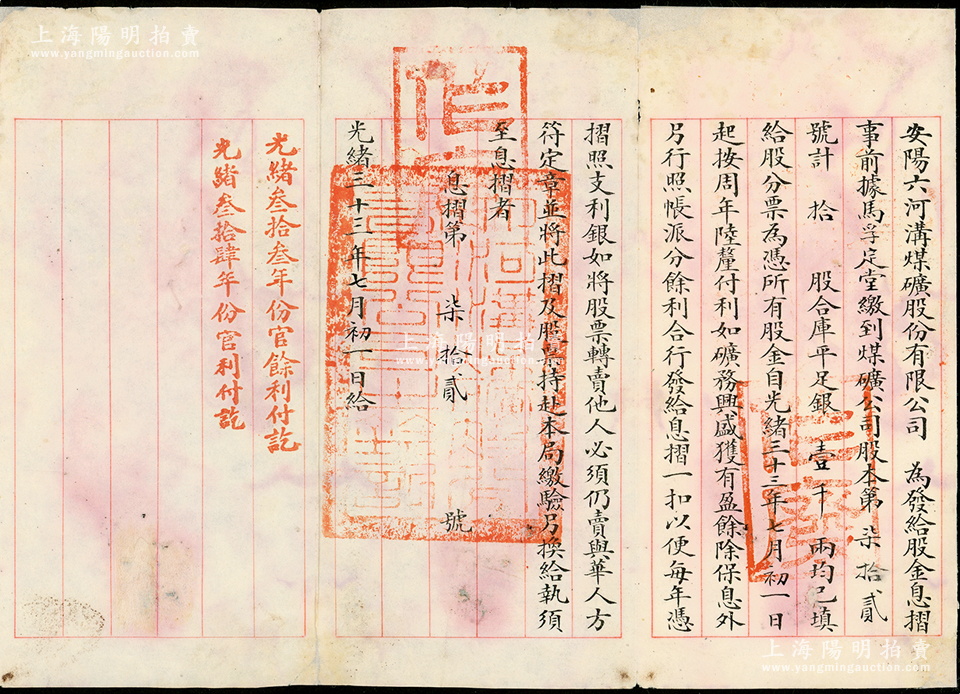 安陽六河溝煤礦股份有限公司 為發給股金息摺
事前據馬孚定堂繳到煤礦公司股本第柒拾貳
號計 拾 股合庫平足銀 壹千 兩均已填
給股分票為憑所有股金自光緒三十三年七月初一日
起按周年陸釐付利如礦務興盛獲有盈餘除保息外
另行照帳派分餘利合行發給息摺一扣以便每年憑
摺照支利銀如將股票轉賣他人必須仍賣與華人方
符定章並將此摺及股票持赴本局繳驗另換給執須
至息摺者
息摺第 柒拾貳 號
光緒三十三年七月初一日給
光緒叁拾叁年份官餘利付訖
光緒叁拾肆年份官利付訖
上海陽明拍賣
www.yangmingauction.com
上海陽明拍賣
www.yangmingauction.com
上海陽明拍賣
www.yangmingauction.com